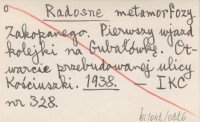 o Radosne metamorfozy
Zakopanego. Pierwszy wjazd
kolejki na Gubałówkę. Ot-
warcie przebudowanej ulicy
Kościuszki. 1938. — IKC
nr 328.